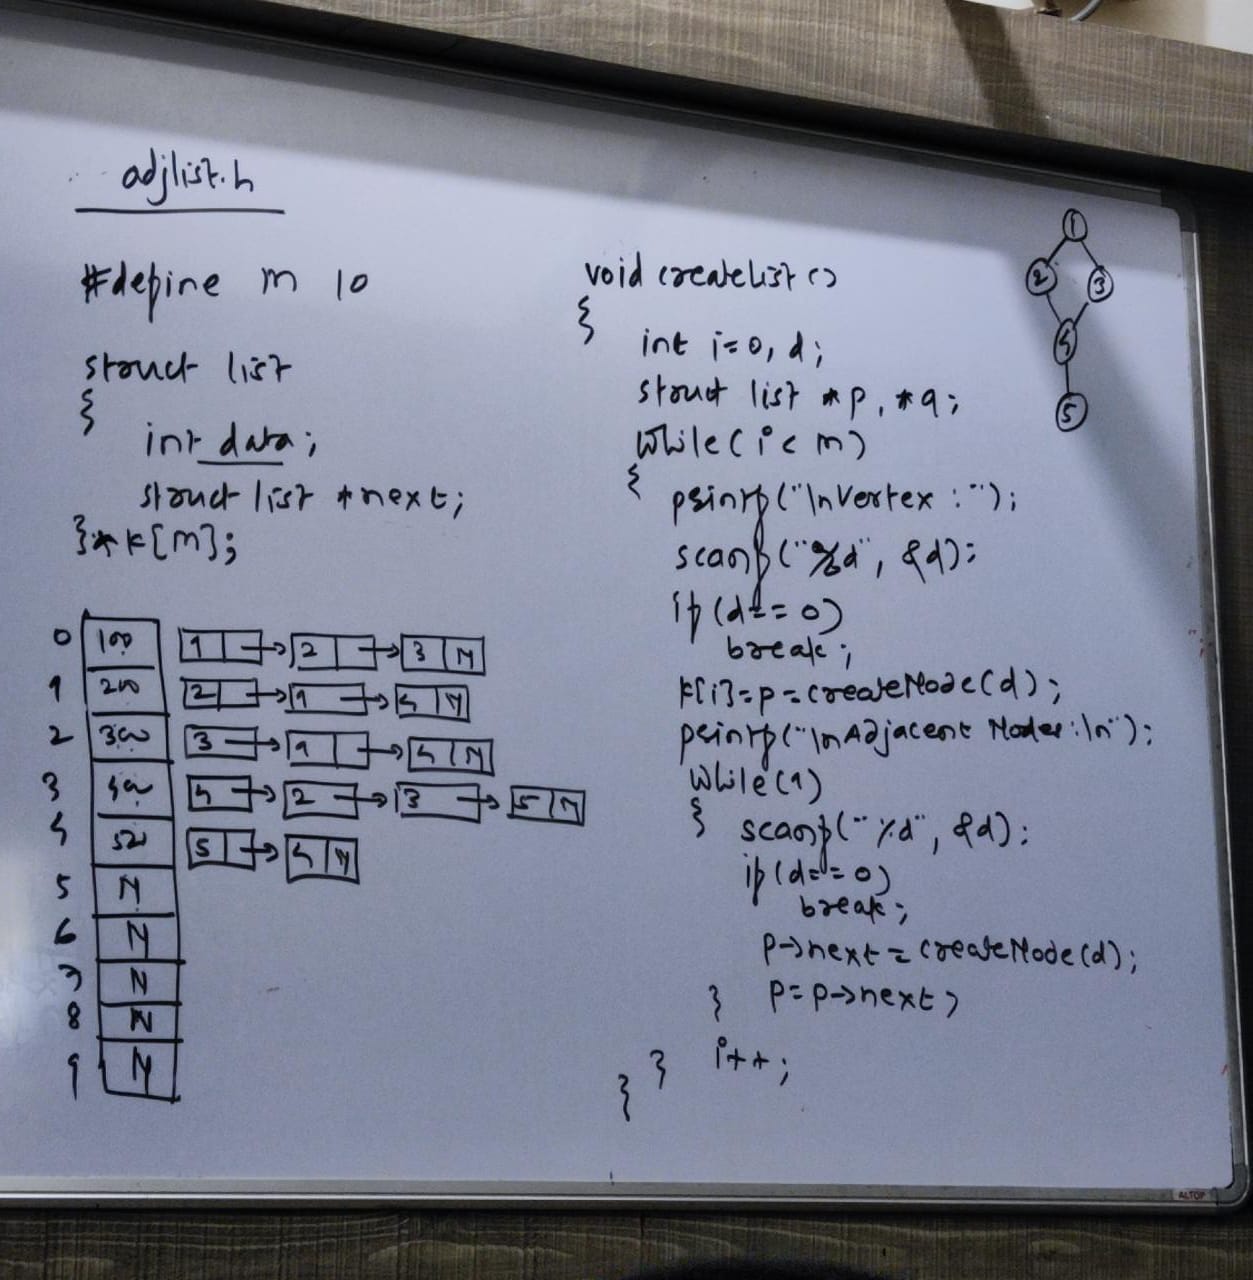 adjlist.h
#define m 10
struct list
{
int data;
struct list *next;
}*k[m];
0 100 1 2 3 N
1 200 2 1 4 N
2 300 3 1 4 N
3 400 4 2 3 5 N
4 500 5 4 N
5 N
6 N
7 N
8 N
9 N
void createlist()
{
int i=0, d;
struct list *p, *q;
while(i<m)
{
printf("\nVertex :");
scanf("%d", &d);
if(d==0)
break;
k[i]=p=createNode(d);
printf("\nAdjacent Nodes:\n");
while(1)
{
scanf("%d", &d);
if(d==0)
break;
p->next=createNode(d);
p=p->next;
}
i++;
}
}
1
2 3
4
5
ALTOP